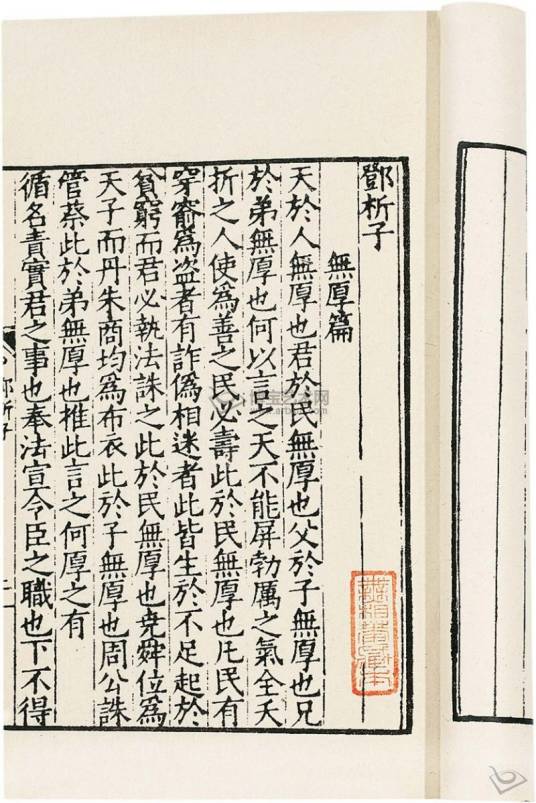 鄧析子
無厚篇
天於人無厚也君於民無厚也父於子無厚也兄
於弟無厚也何以言之天不能屏勃厲之氣全夭
折之人使為善之民必壽此於民無厚也凡民有
穿窬為盗者有詐偽相迷者此皆生於不足起於
貧窮而君必執法誅之此於民無厚也堯舜位為
天子而丹朱商均為布衣此於子無厚也周公誅
管蔡此於弟無厚也推此言之何厚之有
循名責實君之事也奉法宣令臣之職也下不得